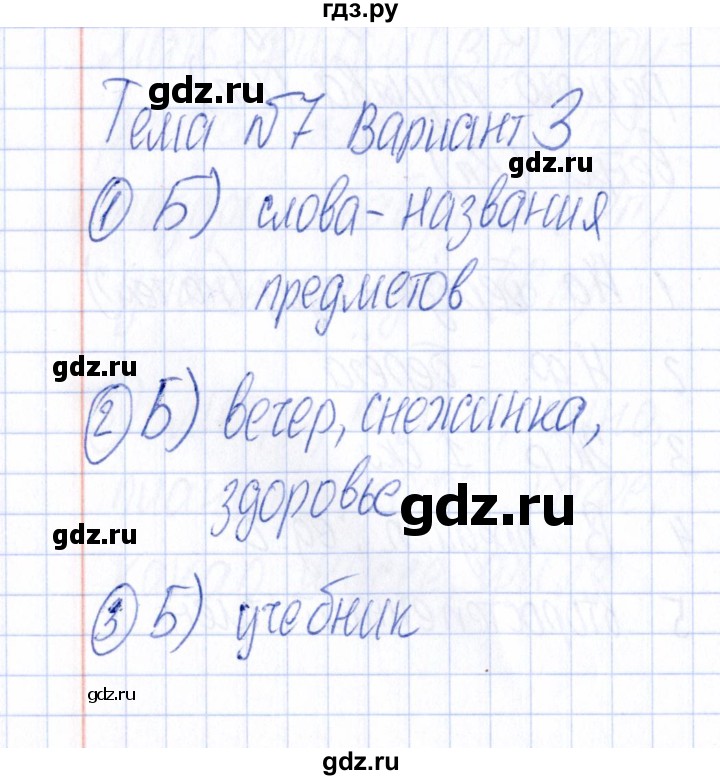 гдз.ру
gdz.ru
Тема №7 Вариант 3
gdz.ru
① Б) слова - названия
предметов
gdz.ru
② Б) вечер, снежинка,
здоровье
gdz.ru
gdz.ru
③ Б) учебник
gdz.ru
gdz.ru
gdz.ru